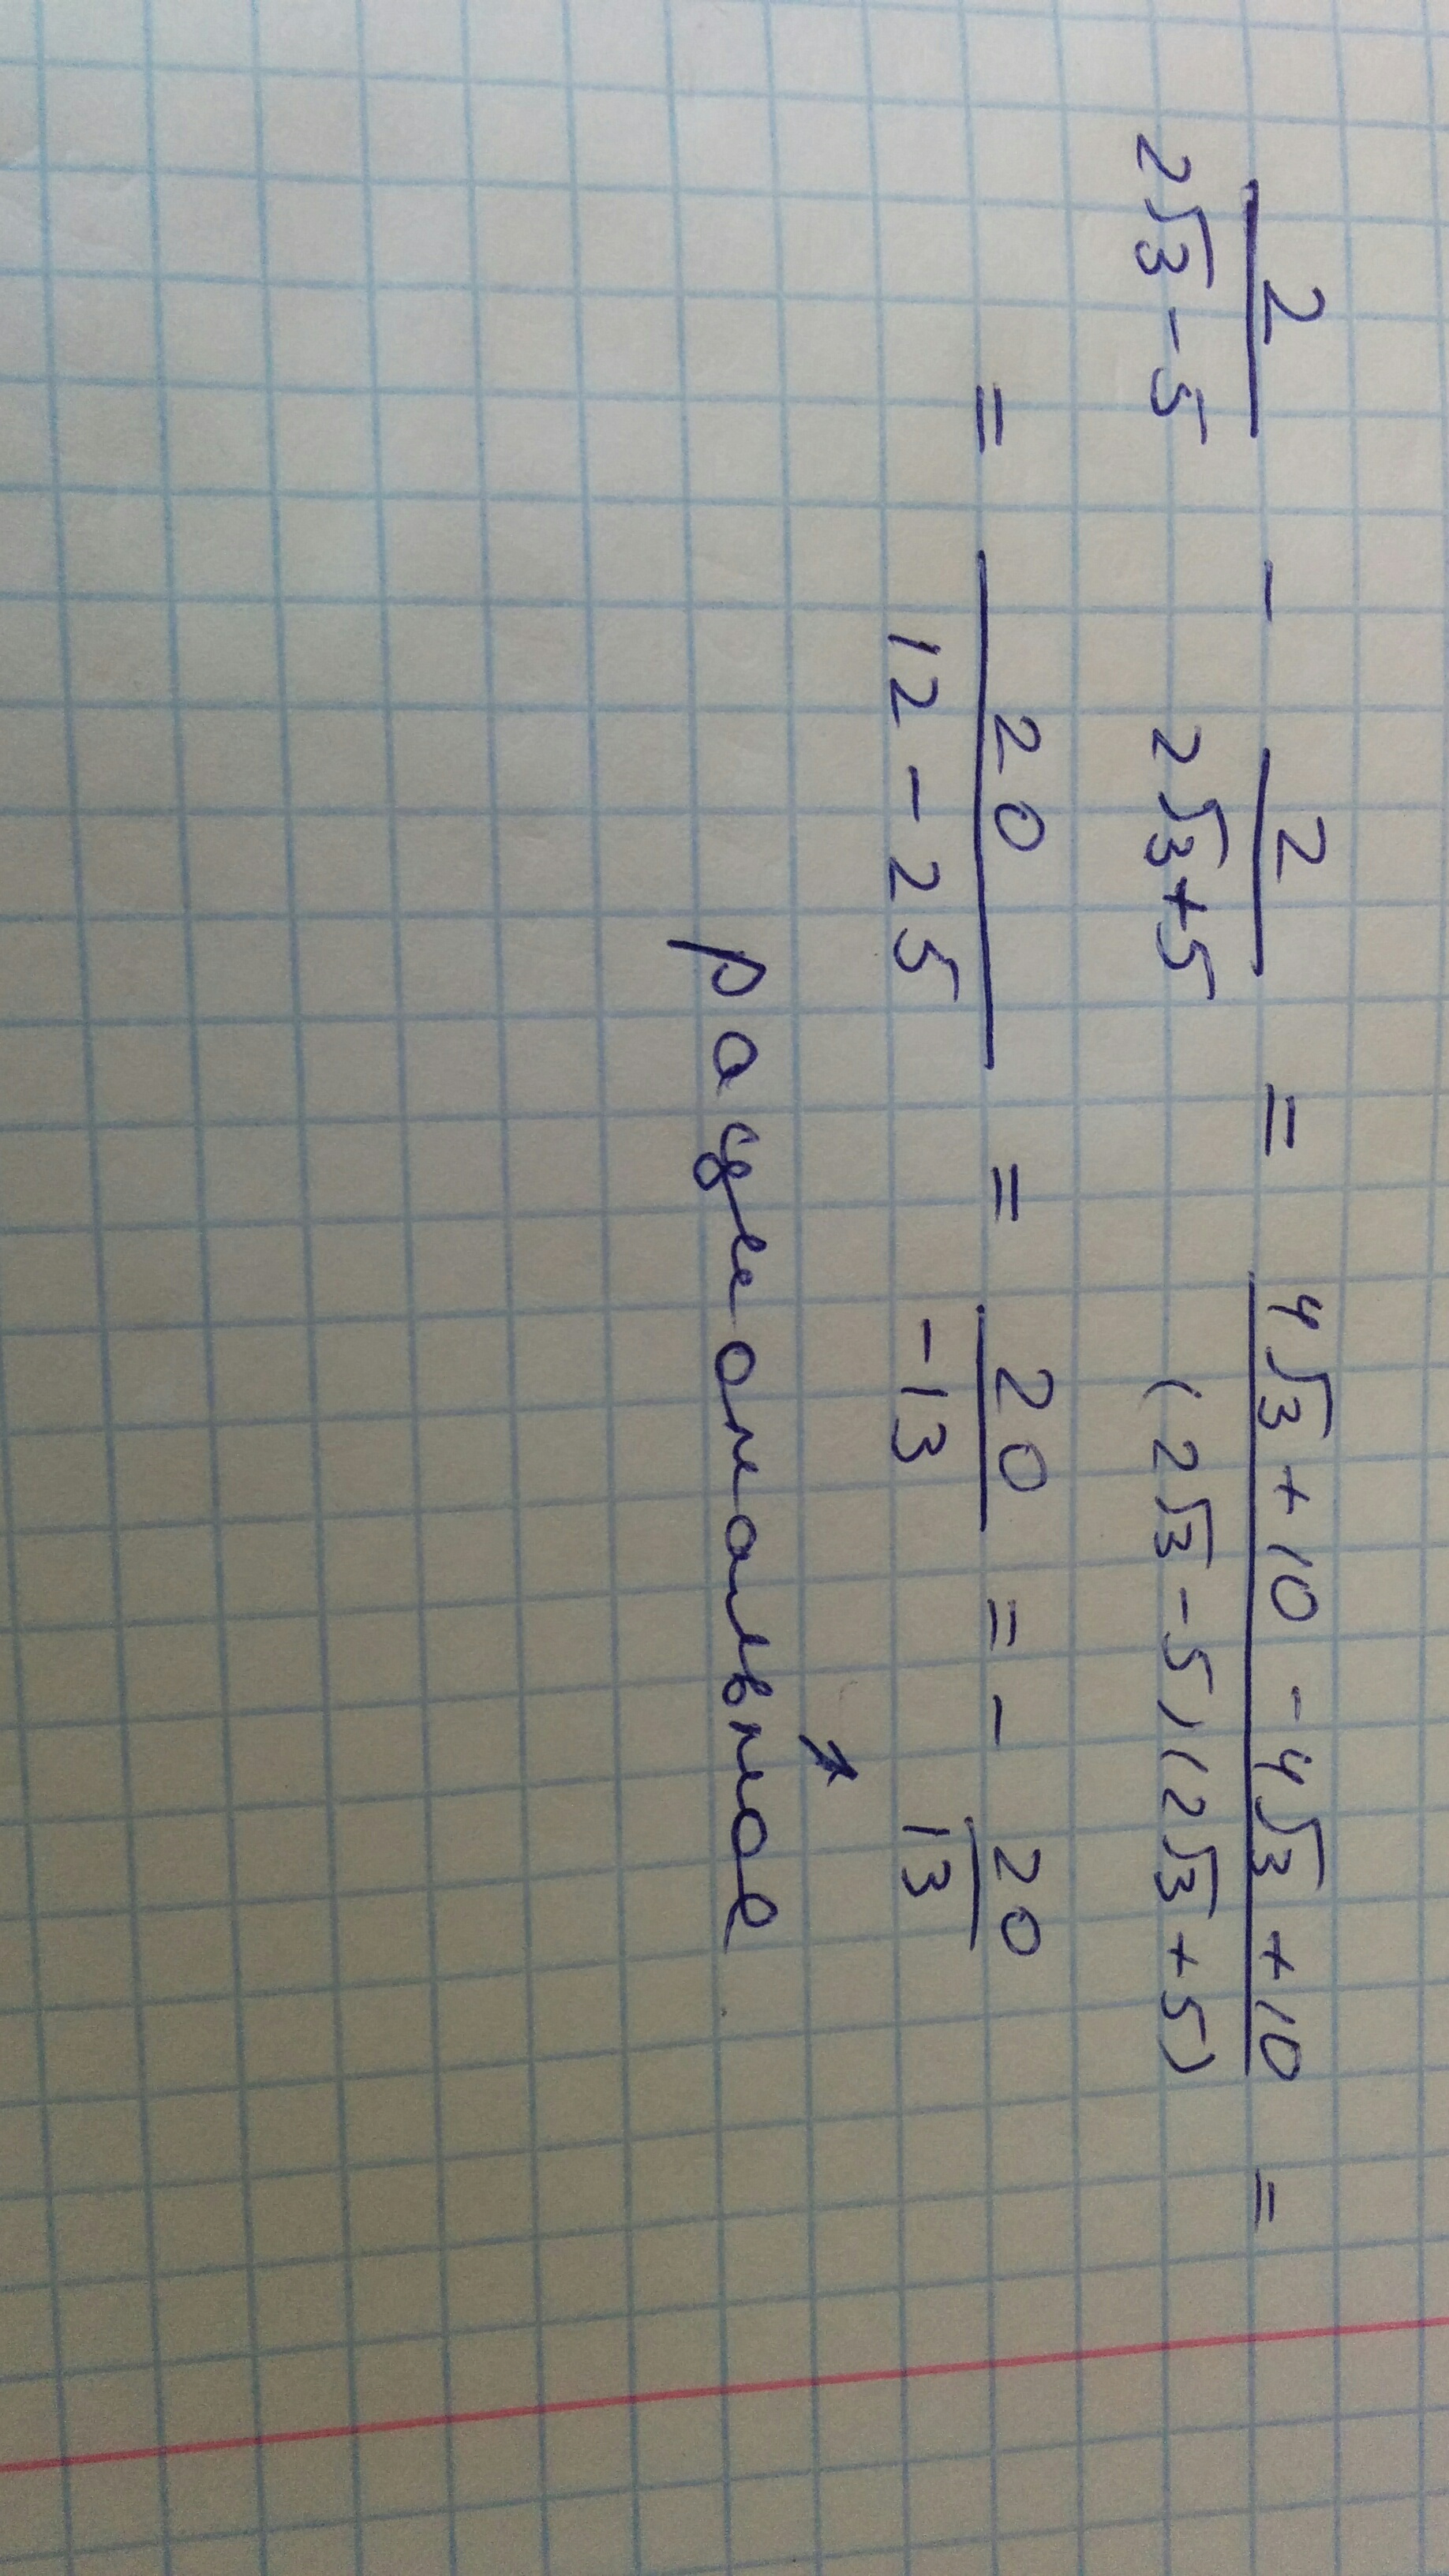 2/(2√3-5) - 2/(2√3+5) = (4√3+10-4√3+10)/((2√3-5)(2√3+5)) =
= 20/(12-25) = 20/(-13) = - 20/13
рациональное